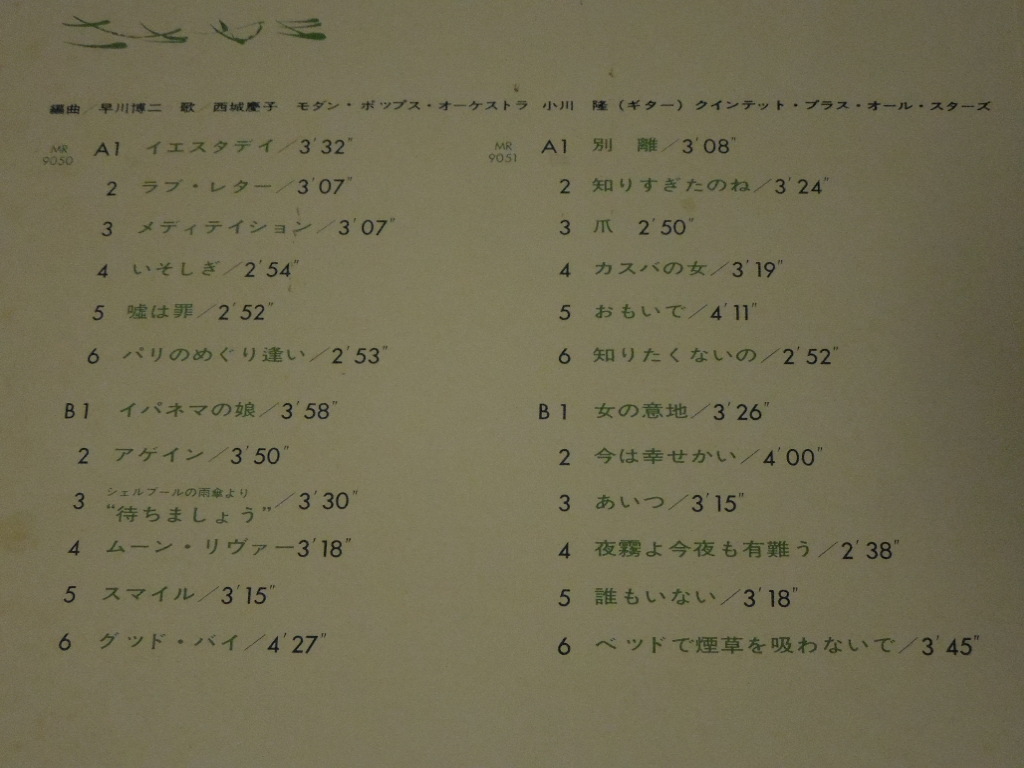 編曲／早川博二 歌／西城慶子 モダン・ポップス・オーケストラ 小川 隆（ギター）クインテット・プラス・オール・スターズ
MR 9050
A1 イエスタデイ／3'32"
2 ラブ・レター／3'07"
3 メディテイション／3'07"
4 いそしぎ／2'54"
5 嘘は罪／2'52"
6 パリのめぐり逢い／2'53"
B1 イパネマの娘／3'58"
2 アゲイン／3'50"
3 シェルブールの雨傘より
“待ちましょう”／3'30"
4 ムーン・リヴァー3'18"
5 スマイル／3'15"
6 グッド・バイ／4'27"
MR 9051
A1 別 離／3'08"
2 知りすぎたのね／3'24"
3 爪 2'50"
4 カスバの女／3'19"
5 おもいで／4'11"
6 知りたくないの／2'52"
B1 女の意地／3'26"
2 今は幸せかい／4'00"
3 あいつ／3'15"
4 夜霧よ今夜も有難う／2'38"
5 誰もいない／3'18"
6 ベッドで煙草を吸わないで／3'45"